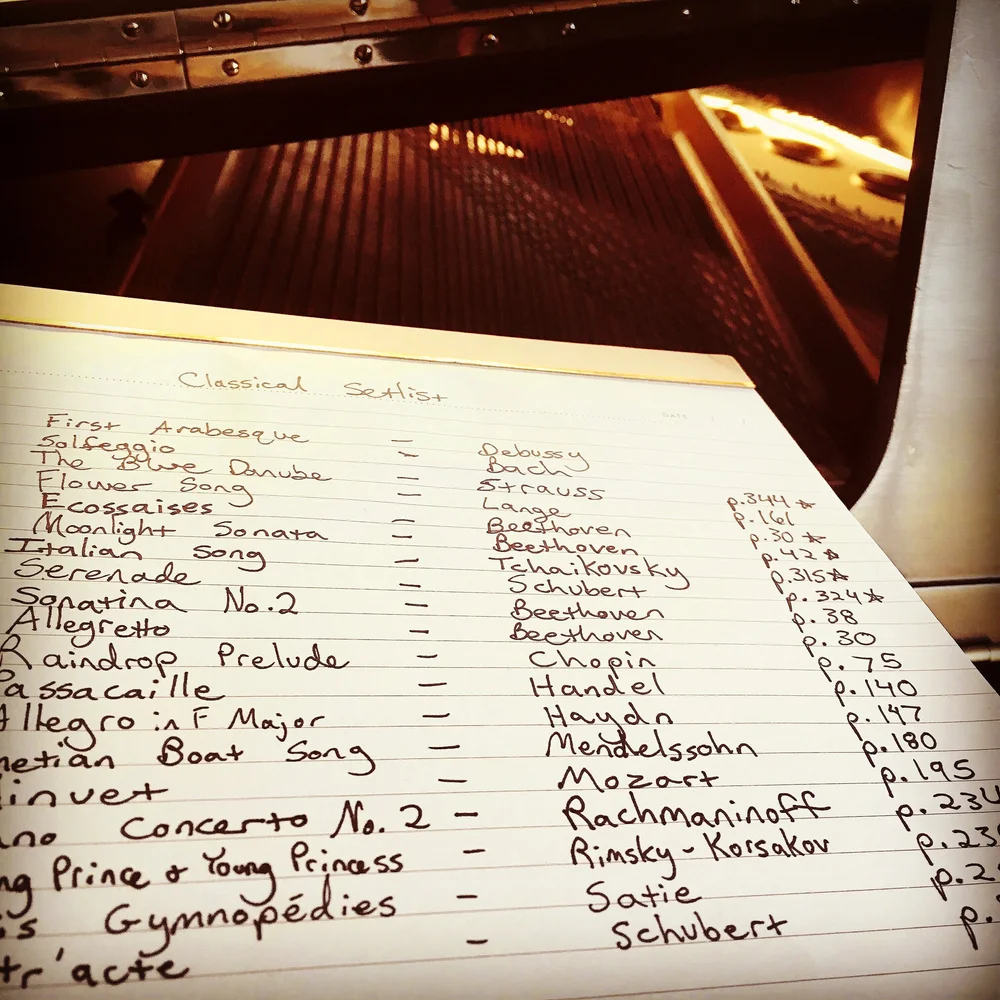 DATE
Classical Setlist
First Arabesque – Debussy
Solfeggio – Bach
The Blue Danube – Strauss p.344 ☆
Flower Song – Lange p.161
Ecossaises – Beethoven p.30 ☆
Moonlight Sonata – Beethoven p.42 ☆
Italian Song – Tchaikovsky p.315 ☆
Serenade – Schubert p.324 ☆
Sonatina No.2 – Beethoven p.38
Allegretto – Beethoven p.30
Raindrop Prelude – Chopin p.75
assacaille – Handel p.140
Allegro in F Major – Haydn p.147
netian Boat Song – Mendelssohn p.180
inuet – Mozart p.195
no Concerto No. 2 – Rachmaninoff p.234
ng Prince & Young Princess – Rimsky-Korsakov p.23
is Gymnopédies – Satie p.2
tr'acte – Schubert p.